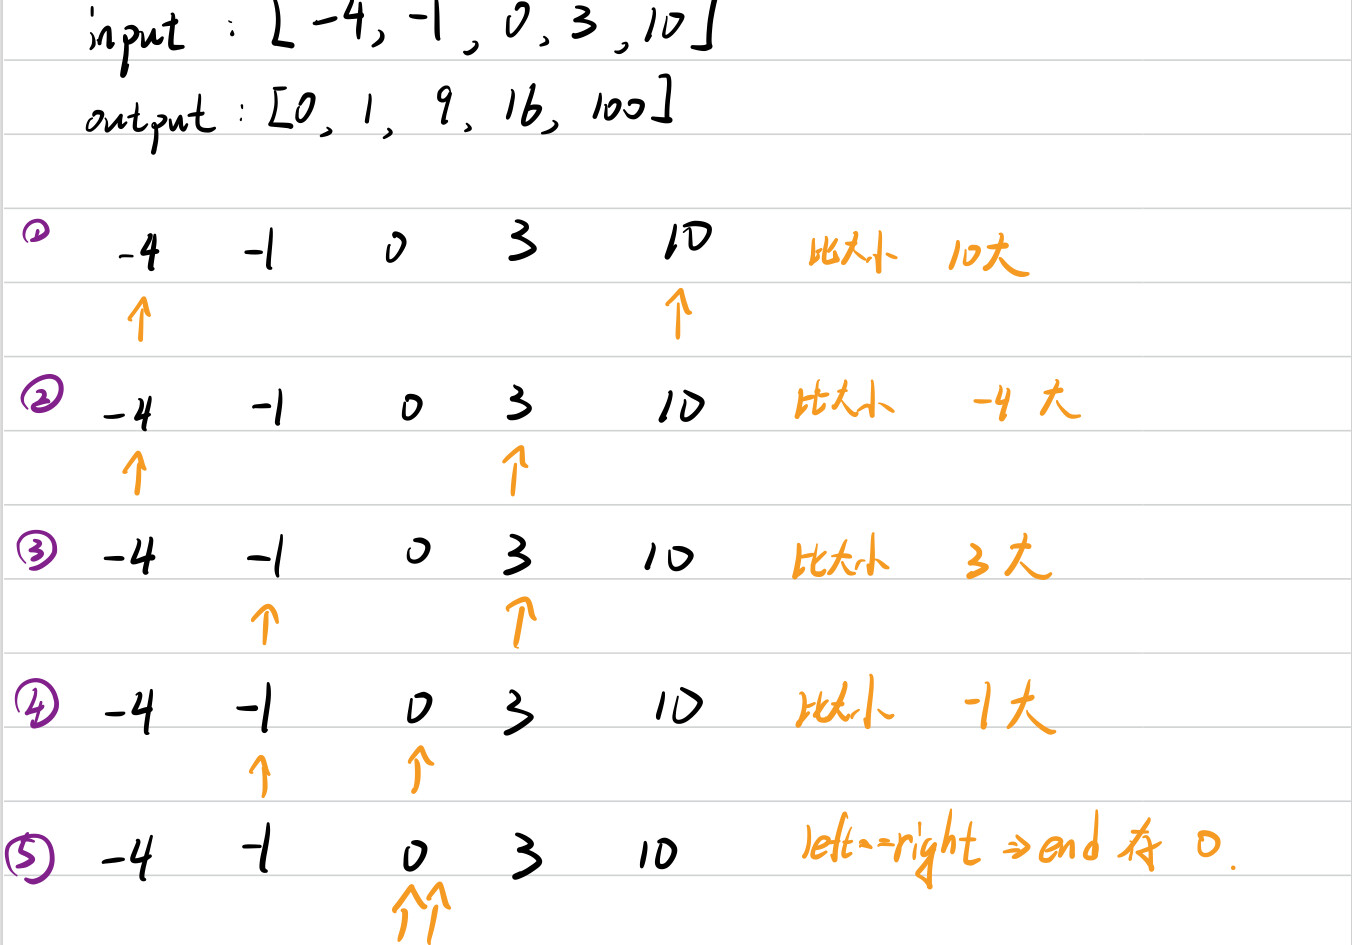 input : [-4, -1, 0, 3, 10]
output : [0, 1, 9, 16, 100]
① -4 -1 0 3 10 比大小 10大
↑ ↑
② -4 -1 0 3 10 比大小 -4 大
↑ ↑
③ -4 -1 0 3 10 比大小 3 大
↑ ↑
④ -4 -1 0 3 10 比大小 -1 大
↑ ↑
⑤ -4 -1 0 3 10 left==right ⇒ end 存 0.
↑↑